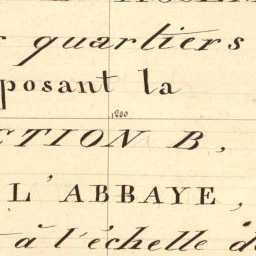 quartiers
posant la
1,200
CTION B,
L'ABBAYE,
à l'échelle d